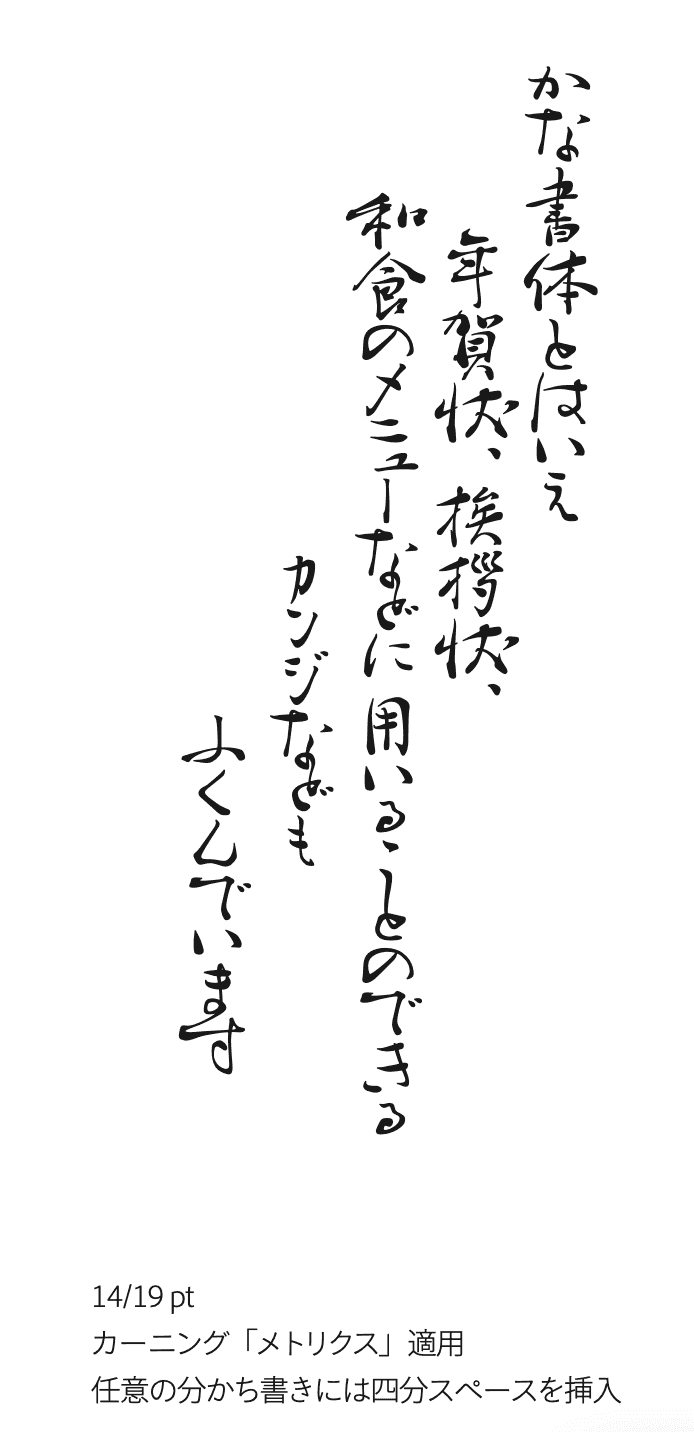 かな書体とはいえ
年賀状、挨拶状、
和食のメニューなどに用いることのできる
カンジなども
ふくんでいます
14/19 pt
カーニング「メトリクス」適用
任意の分かち書きには四分スペースを挿入